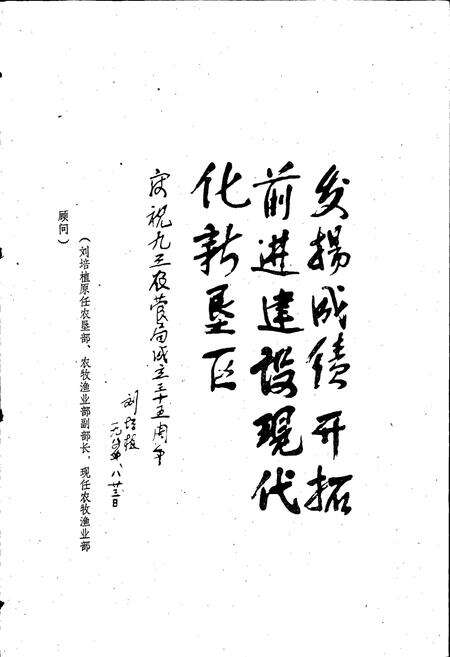 发扬成绩开拓
前进建设现代
化新垦区
庆祝九三农管局成立三十五周年
刘培植
一九八四年、八廿三日
（刘培植原任农垦部、农牧渔业部副部长，现任农牧渔业部
顾问）